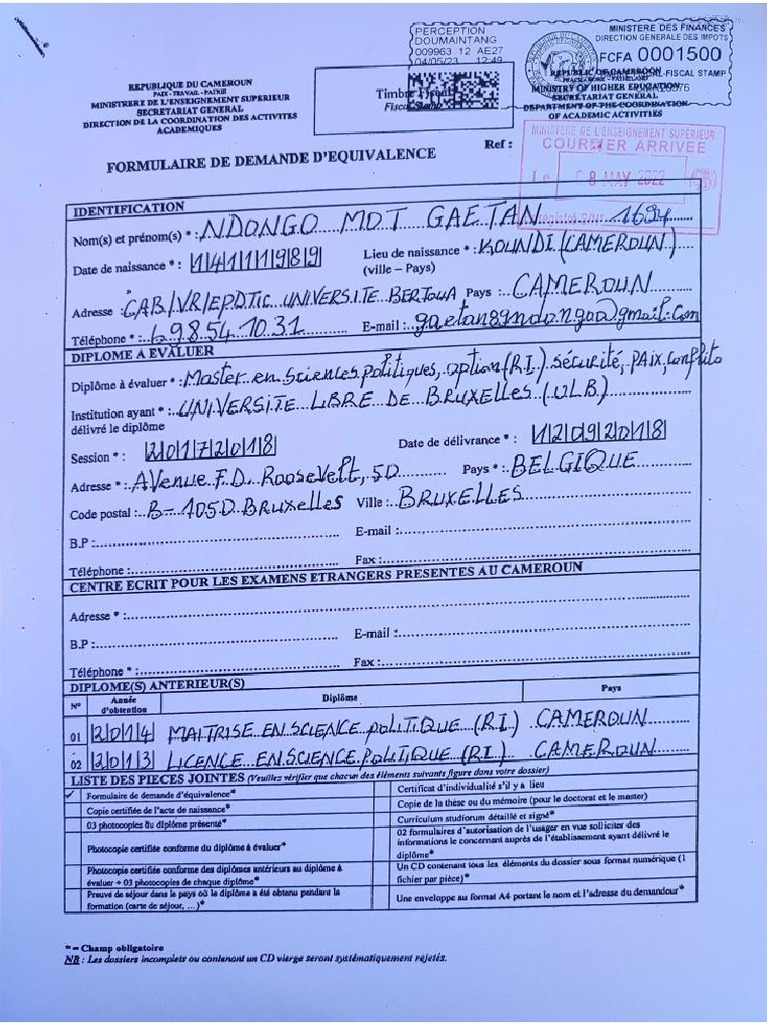 PERCEPTION
DOUMAINTANG
009963 12 AE27
04/05/23 12:49
MINISTERE DES FINANCES
DIRECTION GENERALE DES IMPOTS
FCFA 0001500
REPUBLIQUE DU CAMEROUN
PAIX - TRAVAIL - PATRIE
MINISTRERE DE L'ENSEIGNEMENT SUPERIEUR
SECRETARIAT GENERAL
DIRECTION DE LA COORDINATION DES ACTIVITES
ACADEMIQUES
Timbre Fiscal
Fiscal Stamp
REPUBLIC OF CAMEROON
MINISTRY OF HIGHER EDUCATION
SECRETARIAT GENERAL
DEPARTMENT OF THE COORDINATION
OF ACADEMIC ACTIVITIES
FORMULAIRE DE DEMANDE D'EQUIVALENCE
Ref :
MINISTERE DE L'ENSEIGNEMENT SUPERIEUR
COURRIER ARRIVEE
Le 08 MAY 2022
1694
IDENTIFICATION
Nom(s) et prénom(s) * : NDONGO MOT GAETAN
Date de naissance * : 14111989 Lieu de naissance * : KOUNDI (CAMEROUN)
(ville – Pays)
Adresse : CAB/VR/EPDTIC UNIVERSITE BERTOUA Pays : CAMEROUN
Téléphone * : 698541031 E-mail : gaetan89ndongo@gmail.com
DIPLOME A EVALUER
Diplôme à évaluer * : Master en Sciences politiques, option (R.I.) Sécurité, PAix, Conflits
Institution ayant * : UNIVERSITE LIBRE DE BRUXELLES (ULB)
délivré le diplôme
Session * : 20172018 Date de délivrance * : 12092018
Adresse * : AVenue F.D. Roosevelt, 50 Pays * : BELGIQUE
Code postal : B-1050 BRUXelles Ville : BRUXELLES
B.P : E-mail :
Téléphone : Fax :
CENTRE ECRIT POUR LES EXAMENS ETRANGERS PRESENTES AU CAMEROUN
Adresse * :
B.P : E-mail :
Téléphone * : Fax :
DIPLOME(S) ANTERIEUR(S)
N° Année d'obtention Diplôme Pays
01 2014 MAITRISE EN SCIENCE POLITIQUE (R.I.) CAMEROUN
02 2013 LICENCE EN SCIENCE POLITIQUE (R.I.) CAMEROUN
LISTE DES PIECES JOINTES (Veuillez vérifier que chacun des éléments suivants figure dans votre dossier)
✓ Formulaire de demande d'équivalence*
Certificat d'individualité s'il y a lieu
Copie certifiée de l'acte de naissance*
Copie de la thèse ou du mémoire (pour le doctorat et le master)
03 photocopies du diplôme présenté*
Curriculum studiorum détaillé et signé*
Photocopie certifiée conforme du diplôme à évaluer*
02 formulaires d'autorisation de l'usager en vue solliciter des
informations le concernant auprès de l'établissement ayant délivré le
diplôme*
Photocopie certifiée conforme des diplômes antérieurs au diplôme à
évaluer + 03 photocopies de chaque diplôme*
Un CD contenant tous les éléments du dossier sous format numérique (1
fichier par pièce)*
Preuve de séjour dans le pays où le diplôme a été obtenu pendant la
formation (carte de séjour, ...)*
Une enveloppe au format A4 portant le nom et l'adresse du demandeur*
* = Champ obligatoire
NB : Les dossiers incomplets ou contenant un CD vierge seront systématiquement rejetés.